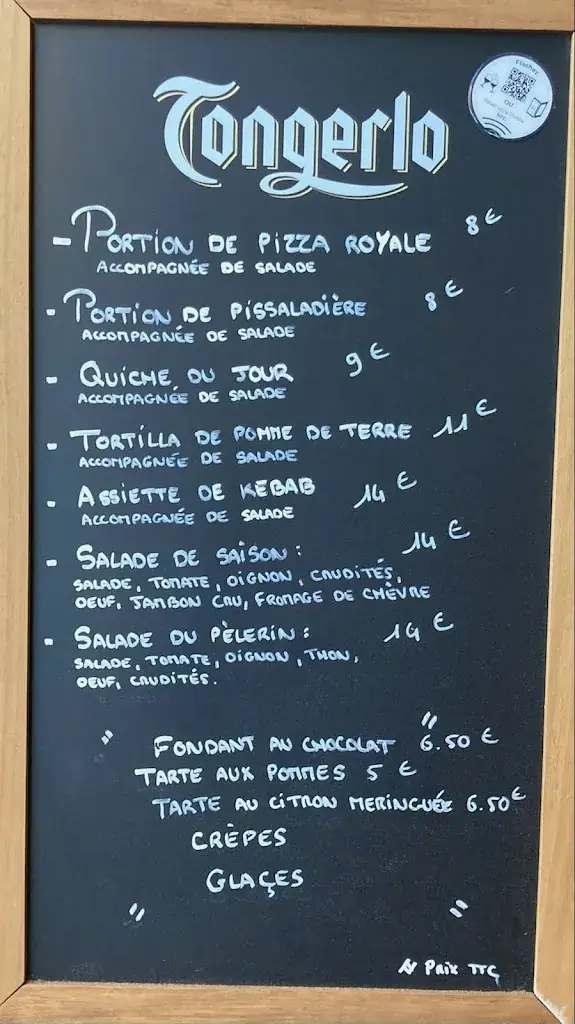 Tongerlo
Flashez
OU
- PORTION DE PIZZA ROYALE 8 €
ACCOMPAGNÉE DE SALADE
- PORTION DE PISSALADIÈRE 8 €
ACCOMPAGNÉE DE SALADE
- QUICHE DU JOUR 9 €
ACCOMPAGNÉE DE SALADE
- TORTILLA DE POMME DE TERRE 11 €
ACCOMPAGNÉE DE SALADE
- ASSIETTE DE KEBAB 14 €
ACCOMPAGNÉE DE SALADE
- SALADE DE SAISON : 14 €
SALADE, TOMATE, OIGNON, CRUDITÉS,
OEUF, JAMBON CRU, FROMAGE DE CHÈVRE
- SALADE DU PÈLERIN : 14 €
SALADE, TOMATE, OIGNON, THON,
OEUF, CRUDITÉS.
" "
FONDANT AU CHOCOLAT 6.50 €
TARTE AUX POMMES 5 €
TARTE AU CITRON MERINGUÉE 6.50 €
CRÈPES
GLAÇES
" "
Prix TTC